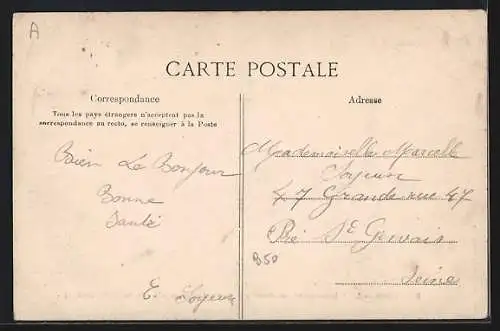 A
CARTE POSTALE
Correspondance
Tous les pays étrangers n'acceptent pas la
correspondance au recto, se renseigner à la Poste
Adresse
Bien Le Bonjour
Bonne
Santé
E. Loyeux
Mademoiselle Marcelle
Loyeux
47 Grande rue 47
Pré St Gervais
Seine
B50